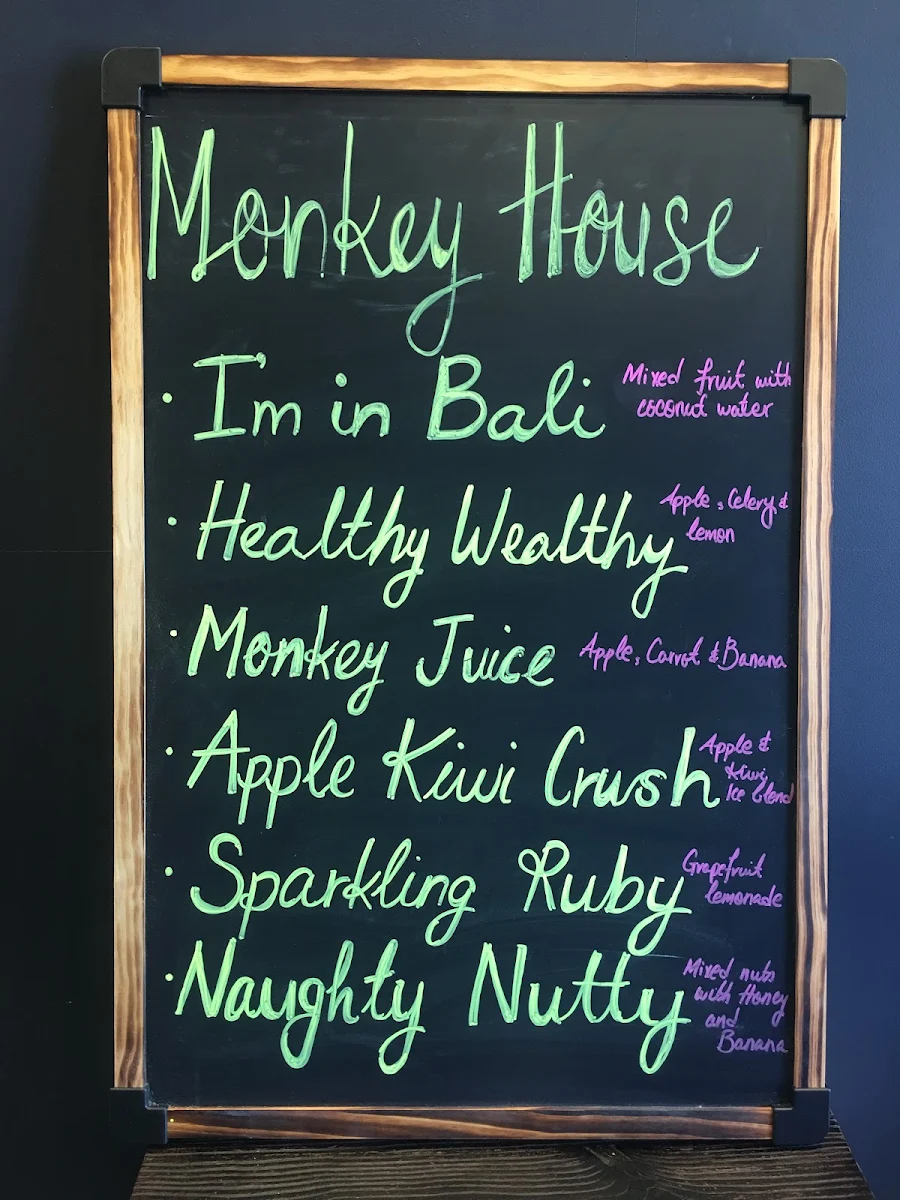 Monkey House
· I'm in Bali
Mixed fruit with
coconut water
· Healthy Wealthy
Apple, Celery &
lemon
· Monkey Juice
Apple, Carrot & Banana
· Apple Kiwi Crush
Apple &
Kiwi,
Ice blend
· Sparkling Ruby
Grapefruit
lemonade
· Naughty Nutty
Mixed nuts
with Honey
and
Banana